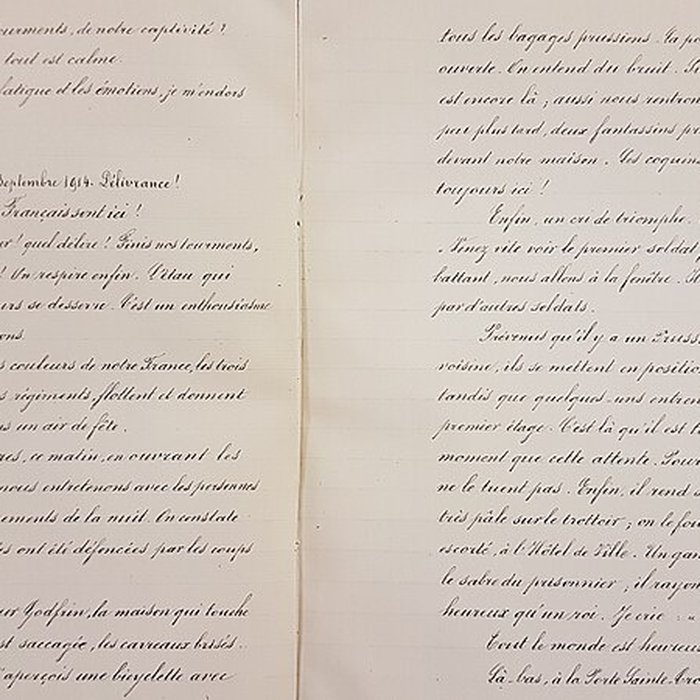 tourments, de notre captivité !
tout est calme.
fatigue et les émotions, je m'endors
Septembre 1914. Délivrance !
Français sont ici !
! quel délire ! Finis nos tourments,
! On respire enfin. L'étau qui
se desserre. C'est un enthousiasme
couleurs de notre France, les trois
régiments, flottent et donnent
un air de fête.
, ce matin, en ouvrant les
nous entretenons avec les personnes
de la nuit. On constate
ont été défoncées par les coups
Godfrin, la maison qui touche
est saccagée, les carreaux brisés.
J'aperçois une bicyclette avec
tous les bagages prussiens. La
ouverte. On entend du bruit.
est encore là ; aussi nous
peu plus tard, deux fantassins
devant notre maison. Les coquins
toujours ici !
Enfin, un cri de triomphe.
Venez vite voir le premier soldat,
battant, nous allons à la fenêtre.
par d'autres soldats.
Prévenus qu'il y a un
voisine, ils se mettent en position
tandis que quelques-uns
premier étage. C'est là qu'il est
moment que cette attente.
ne le tuent pas. Enfin, il rend
très pâle sur le trottoir ; on le
escorté, à l'Hôtel de Ville. Un
le sabre du prisonnier ; il
heureux qu'un roi. Je crie : "
Tout le monde est heureux
Là-bas, à la Porte Sainte